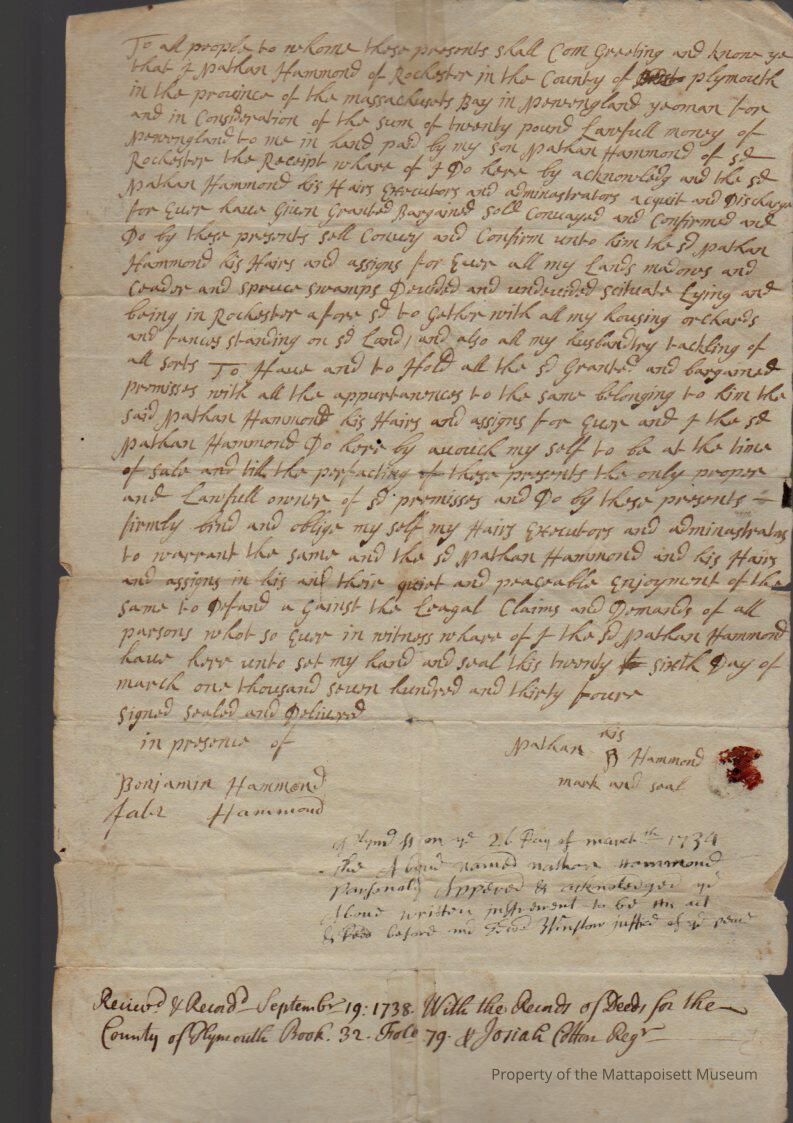 To all people to whome these presents shall Com Greeting and know ye
that I Nathan Hammond of Rochester in the County of plymouth
in the province of the massachusets Bay in Newengland yeoman for
and in Consideration of the sum of twenty pound Lawfull money of
Newengland to me in hand paid by my son Nathan Hammond of sd
Rochester the Receipt whare of I Do here by acknowledg and the sd
Nathan Hammond his Hairs Executors and adminastrators acquit and Discharge
for Euer haue Giuen Granted Bargained sold Conuayed and Confirmed and
Do by these presents sell Conuey and Confirm unto him the sd Nathan
Hammond his Hairs and assigns for Euer all my Lands madows and
Ceador and spruce swamps Deuided and undeuided scituate Lying and
being in Rochester afore sd to Gether with all my housing orchards
and fances standing on sd Land, and also all my husbandry tackling of
all sorts To Haue and to Hold all the sd Granted and bargained
premisses with all the appurtanances to the same belonging to him the
said Nathan Hammond his Hairs and assigns for Euer and I the sd
Nathan Hammond Do here by auouch my self to be at the time
of sale and till the perfacting of these presents the only proper
and Lawfull owner of sd premisses and Do by these presents
firmly bind and oblige my self my Hairs Executors and adminastrators
to warrant the same and the sd Nathan Hammond and his Hairs
and assigns in his and their quiet and peaceable Enjoyment of the
same to Defand a Gainst the Leagal Claims and Demands of all
parsons whot so Euer in witness whare of I the sd Nathan Hammond
haue here unto set my hand and seal this twenty sixth Day of
march one thousand seuen hundred and thirty foure
Signed Sealed and Deliuered
in presence of
his
Nathan B Hammond
mark and seal
Benjamin Hammond
Hammond
Plymd ss on ye 26 Day of march 1734
The Aboue named nathan Hammond
Parsonaly Appered & acknoledged ye
Aboue written instrement to be his act
& before me Winslow justice of ye peace
Receivd & Recordd Septembr 19: 1738. With the Records of Deeds for the
County of Plymouth Book. 32. Folo 79. Josiah Cotton Regr
Property of the Mattapoisett Museum